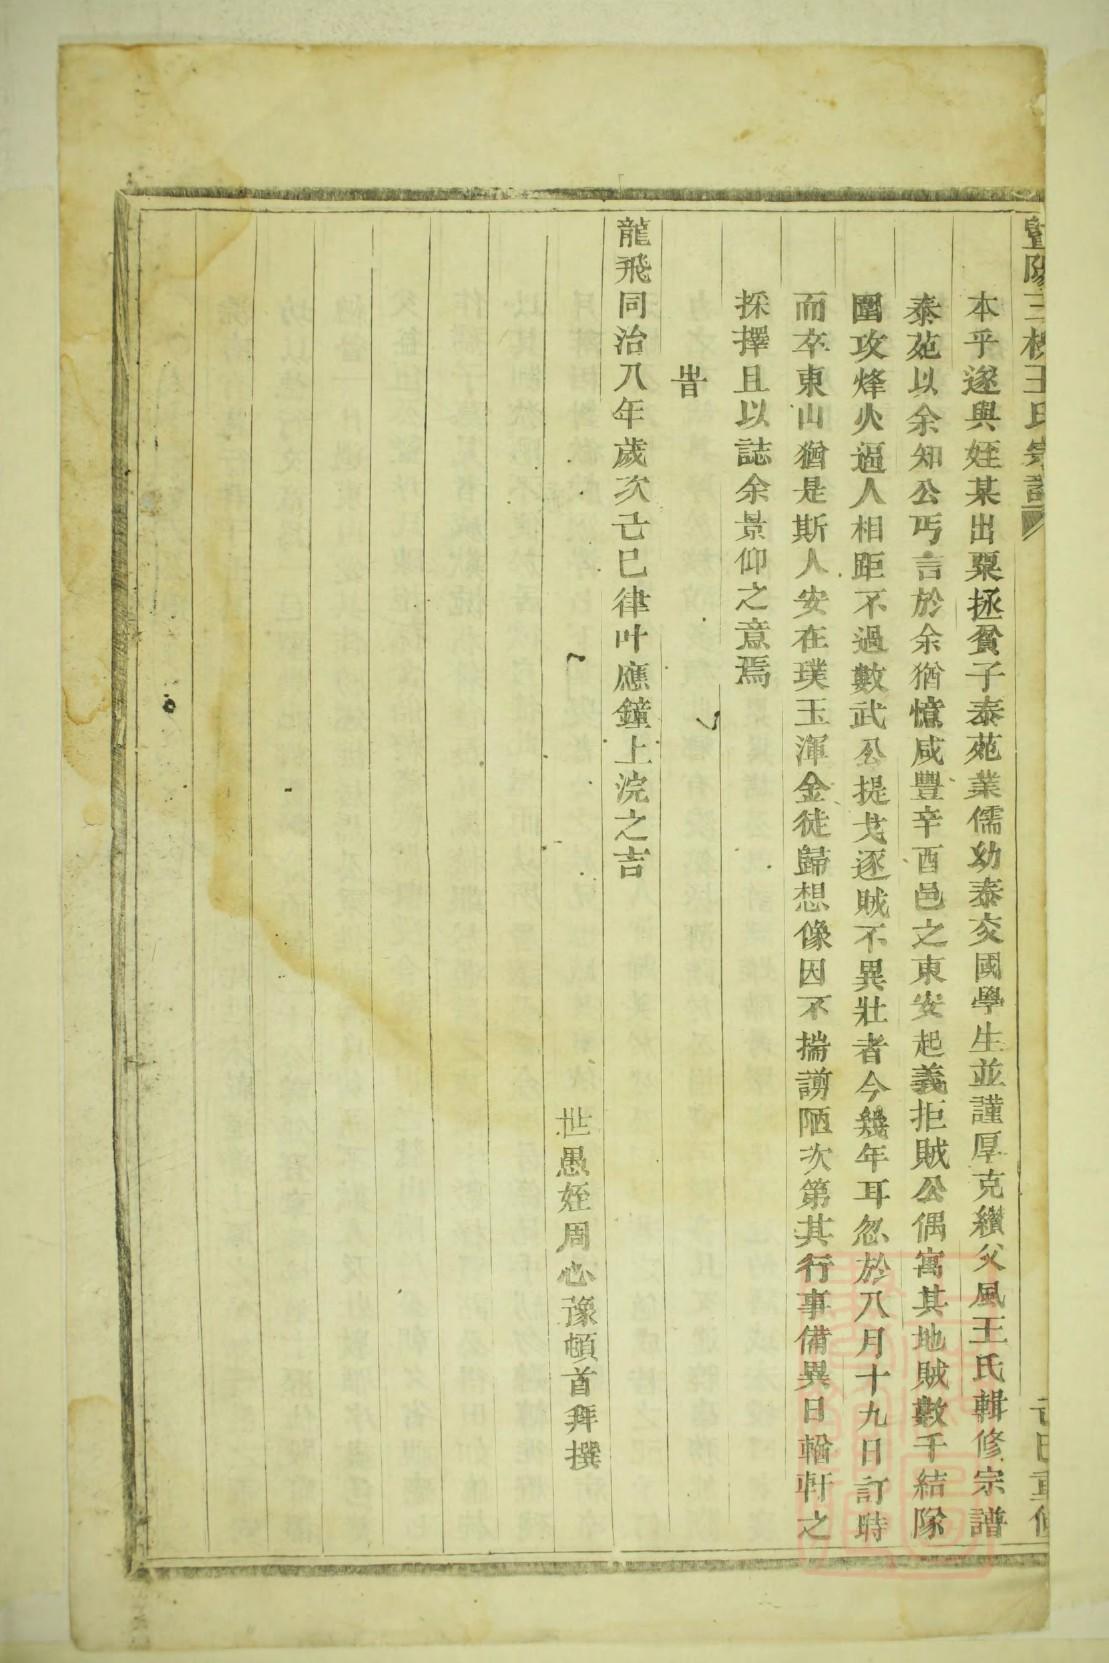 暨陽三橋王氏宗譜 己巳重修
本乎遂與姪某出粟拯貧子泰苑業儒幼泰交國學生並謹厚克纘父風王氏輯修宗譜
泰苑以余知公丐言於余猶憶咸豐辛酉邑之東安起義拒賊公偶寓其地賊數千結隊
圍攻烽火逼人相距不過數武公提戈逐賊不異壯者今幾年耳忽於八月十九日訂時
而卒東山猶是斯人安在璞玉渾金徒歸想像因不揣謭陋次第其行事備異日輶軒之
採擇且以誌余景仰之意焉
旹
龍飛同治八年歲次己巳律叶應鐘上浣之吉
世愚姪周心豫頓首拜撰